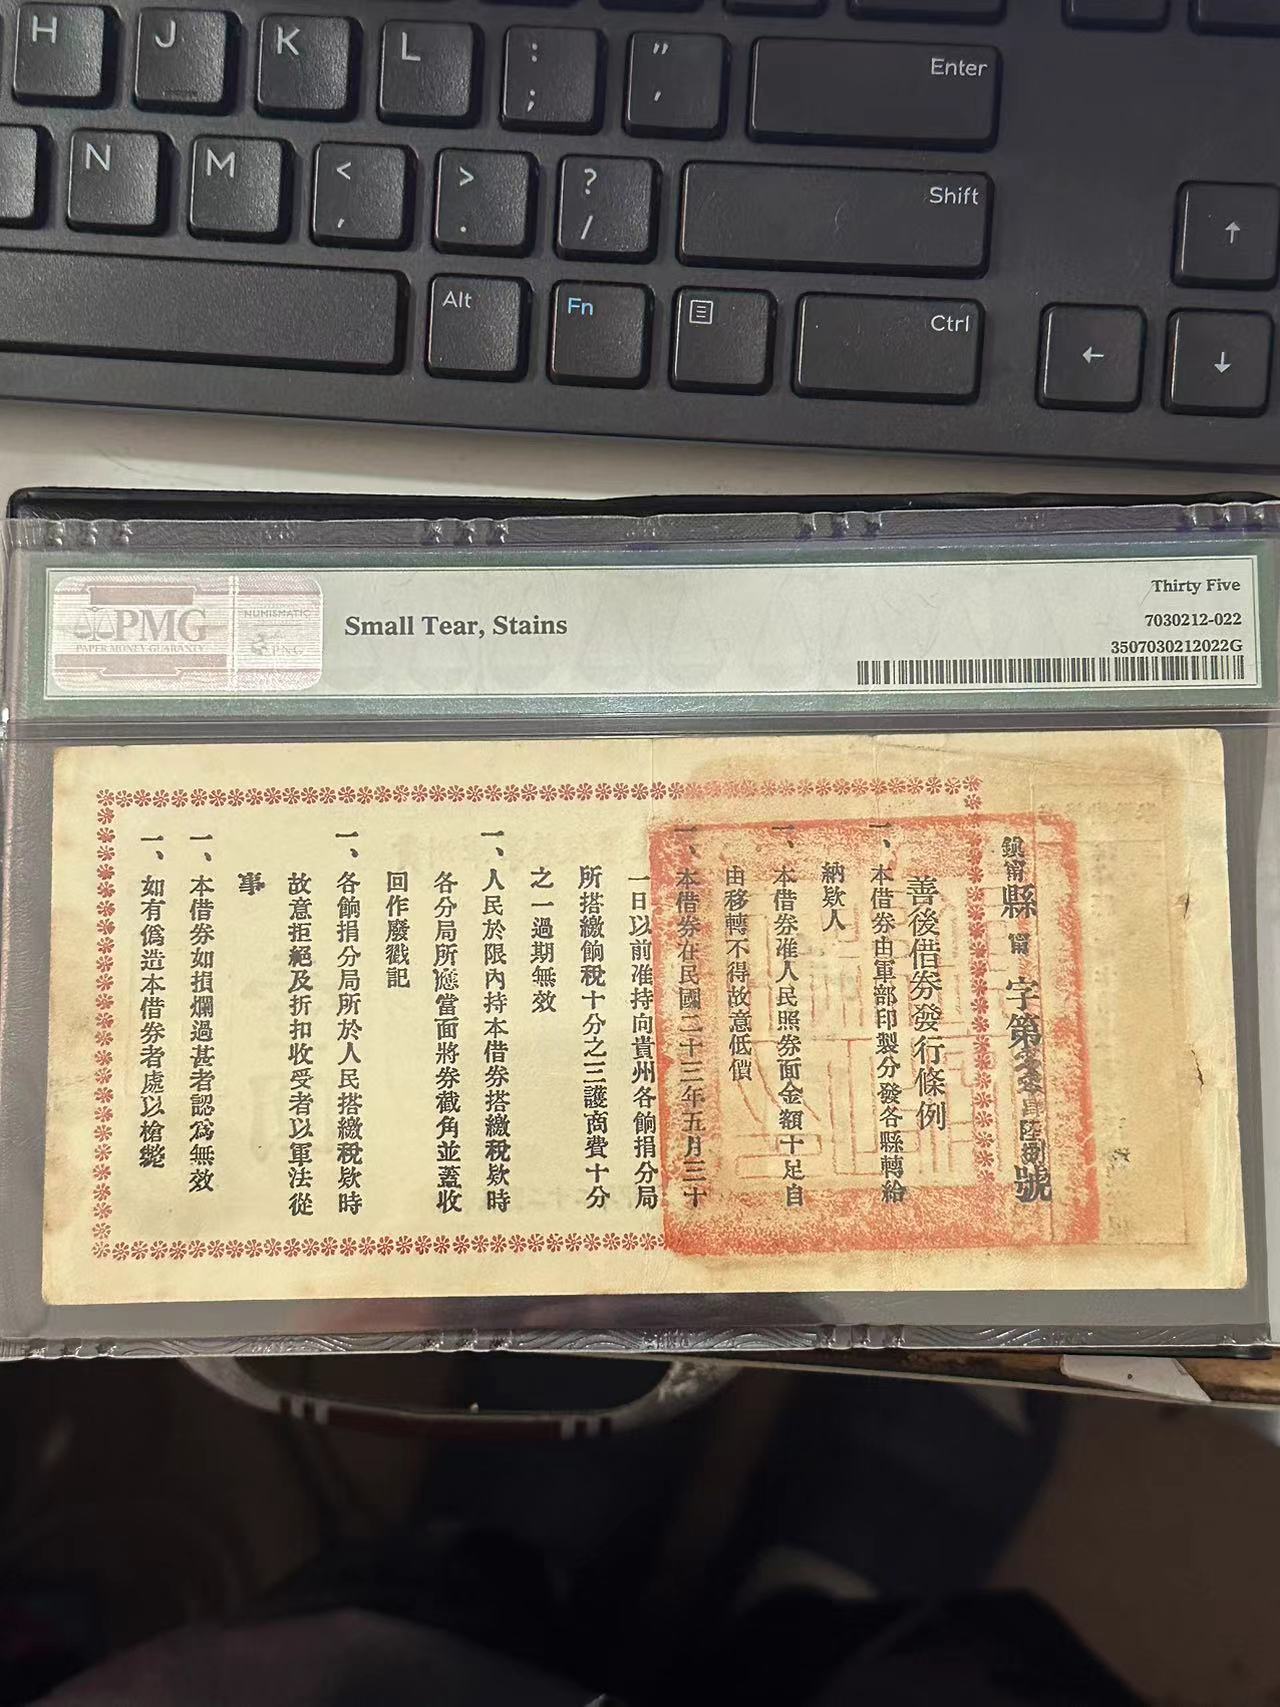 H J K L : ; " ' Enter
N M < , > . ? / Shift ↑
Alt Fn Ctrl ← ↓
PMG
PAPER MONEY GUARANTY
NUMISMATIC
PNG
Small Tear, Stains
Thirty Five
7030212-022
3507030212022G
鎮甯縣 甯 字第 陸捌號
善後借券發行條例
一、本借券由軍部印製分發各縣轉給
納欵人
一、本借券准人民照券面金額十足自
由移轉不得故意低價
一、本借券在民國二十三年五月三十
一日以前准持向貴州各餉捐分局
所搭繳餉税十分之三護商費十分
之一過期無效
一、人民於限內持本借券搭繳税欵時
各分局所應當面將券截角並蓋收
回作廢戳記
一、各餉捐分局所於人民搭繳税欵時
故意拒絕及折扣收受者以軍法從
事
一、本借券如損爛過甚者認爲無效
一、如有僞造本借券者處以槍斃